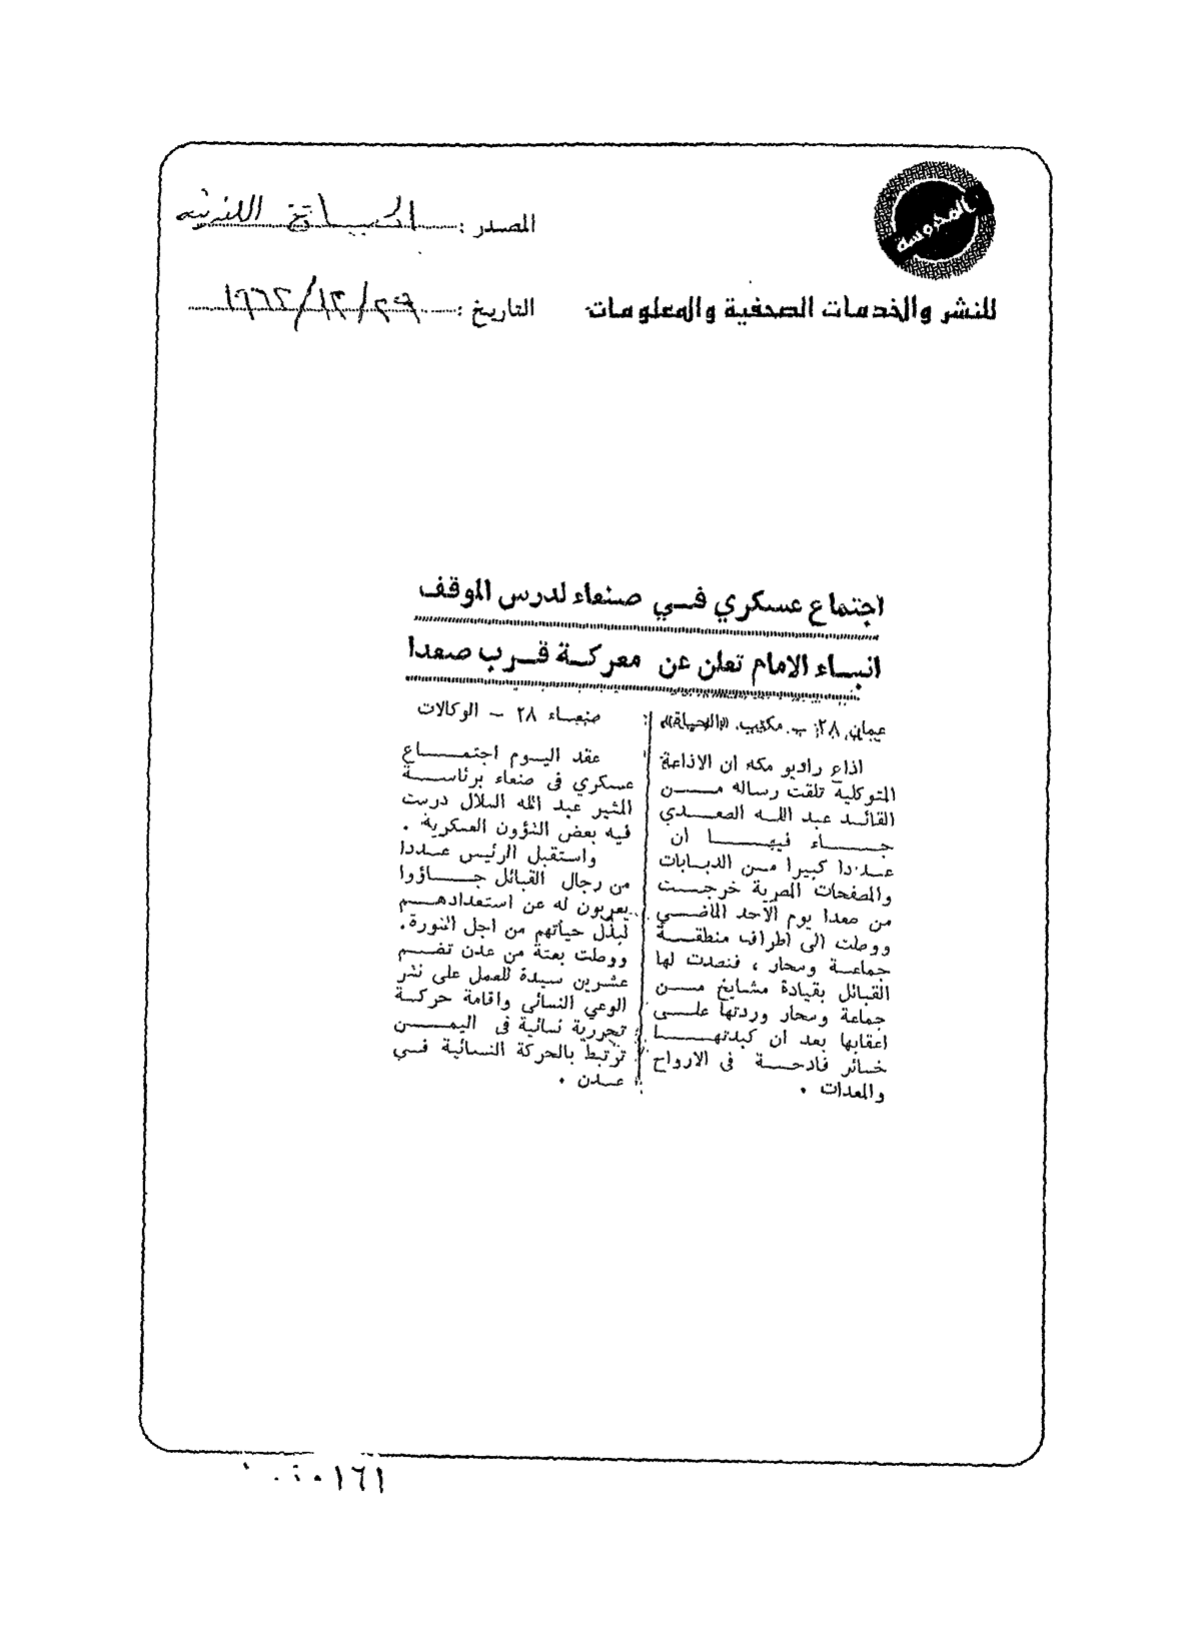 المحروسة
للنشر والخدمات الصحفية والمعلومات
المصدر : الحياة اللندنية
التاريخ : ١٩٦٢/١٢/٢٩
اجتماع عسكري في صنعاء لدرس الموقف
انباء الامام تعلن عن معركة قرب صعدا
عمان ٢٨ ـ مكتب «الحياة»
اذاع راديو مكه ان الاذاعة
المتوكلية تلقت رساله من
القائد عبد الله الصعدي
جاء فيها ان
عددا كبيرا من الدبابات
والمصفحات المصرية خرجت
من صعدا يوم الأحد الماضي
ووصلت الى اطراف منطقة
جماعة وسحار ، فتصدت لها
القبائل بقيادة مشايخ من
جماعة وسحار وردتها على
اعقابها بعد ان كبدتها
خسائر فادحة في الارواح
والمعدات .
صنعاء ٢٨ ـ الوكالات
عقد اليوم اجتماع
عسكري في صنعاء برئاسة
المشير عبد الله السلال درست
فيه بعض الشؤون العسكرية .
واستقبل الرئيس عددا
من رجال القبائل جاؤوا
يعربون له عن استعدادهم
لبذل حياتهم من اجل الثورة .
ووصلت بعثة من عدن تضم
عشرين سيدة للعمل على نشر
الوعي النسائي واقامة حركة
تحررية نسائية في اليمن
ترتبط بالحركة النسائية في
عدن .